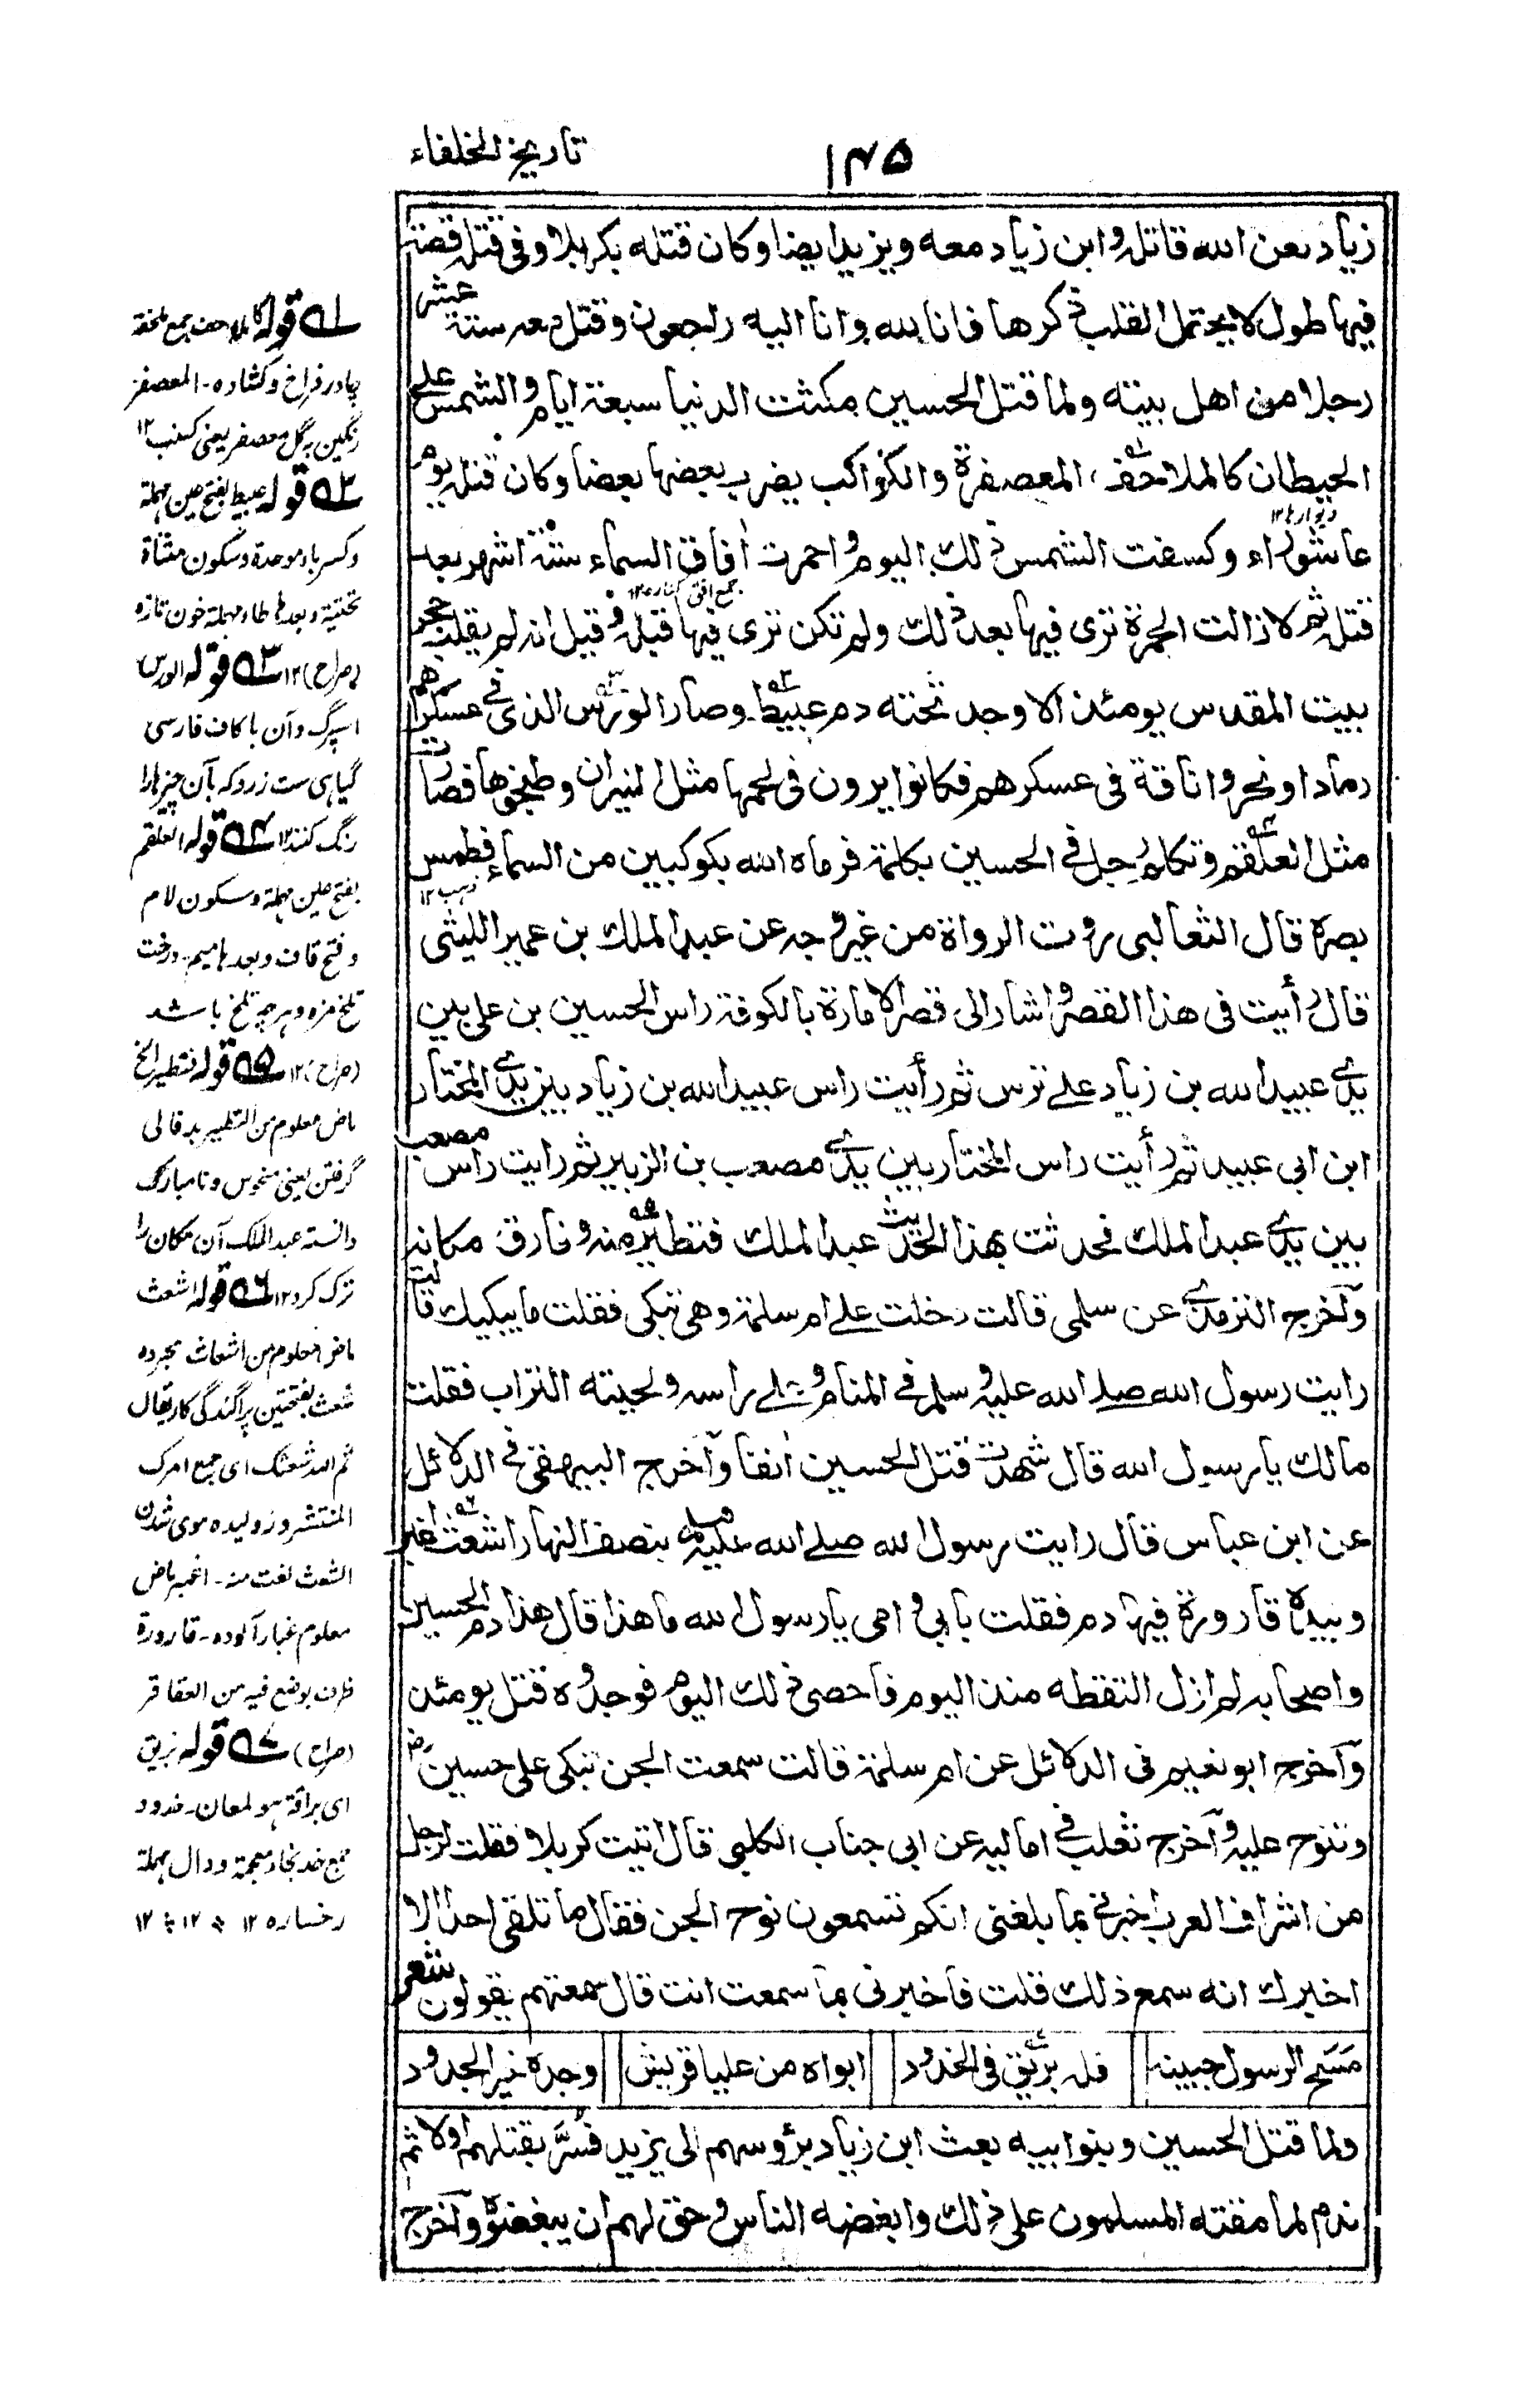 تاریخ الخلفاء
۱۴۵
زیاد لعن الله قاتله وابن زیاد معه ویزید ایضا وکان قتله بکربلا وفی قتله قصة
فیها طول لا یحتمل القلب ذکرها فانا لله وانا الیه راجعون وقتل معه ستة عشر
رجلا من اهل بیته ولما قتل الحسین مکثت الدنیا سبعة ایام والشمس علی
الحیطان کالملاحف المعصفرة والکواکب یضرب بعضها بعضا وکان قتله یوم
دیوارها ۱۲
عاشوراء وکسفت الشمس ذلك الیوم واحمرت اٰفاق السماء ستة اشهر بعد
جمع افق کناره ۱۲
قتله ثم لا زالت الحمرة تری فیها بعد ذلك ولم تکن تری فیها قبله وقیل انه لم یقلب حجر
بیت المقدس یومئذ الا وجد تحته دم عبیط وصار الورس الذی فی عسکرهم
رمادا ونحروا ناقة فی عسکرهم فکانوا یرون فی لحمها مثل النیران وطبخوها فصارت
مثل العلقم وتکلم رجل فی الحسین بکلمة فرماه الله بکوکبین من السماء فطمس
بصره قال الثعالبی روت الرواة من غیر وجه عن عبد الملك بن عمیر اللیثی
قال رأیت فی هذا القصر واشار الی قصر الامارة بالکوفة راس الحسین بن علی بین
یدی عبید الله بن زیاد علی ترس ثم رأیت راس عبید الله بن زیاد بین یدی المختار
ابن ابی عبید ثم رأیت راس المختار بین یدی مصعب بن الزبیر ثم رایت راس مصعب
بین یدی عبد الملك فحدثت بهذا الحدیث عبد الملك فتطیر منه وفارق مکانه
وآخرج الترمذی عن سلمی قالت دخلت علی ام سلمة وهی تبکی فقلت ما یبکیك قالت
رایت رسول الله صلی الله علیه وسلم فی المنام وعلی راسه ولحیته التراب فقلت
مالك یا رسول الله قال شهدت قتل الحسین اٰنفا وآخرج البیهقی فی الدلائل
عن ابن عباس قال رایت رسول الله صلی الله علیه وسلم بنصف النهار اشعث اغبر
وبیده قارورة فیها دم فقلت بابی وامی یا رسول الله ما هذا قال هذا دم الحسین
واصحابه لم ازل التقطه منذ الیوم فاحصی ذلك الیوم فوجدوه قتل یومئذ
وآخرج ابو نعیم فی الدلائل عن ام سلمة قالت سمعت الجن تبکی علی حسین رض
وتنوح علیه وآخرج ثعلب فی امالیه عن ابی جناب الکلبی قال اتیت کربلا فقلت لرجل
من اشراف العرب اخبرنی بما بلغنی انکم تسمعون نوح الجن فقال ما تلقی احدا الا
اخبرك انه سمع ذلك قلت فاخبرنی بما سمعت انت قال سمعتهم یقولون شعر
مَسَحَ الرسول جبینه فله بریق فی الخدود ابواه من علیا قریش وجده خیر الجدود
ولما قتل الحسین وبنوا ابیه بعث ابن زیاد برؤسهم الی یزید فسُرَّ بقتلهم اولا ثم
ندم لما مقته المسلمون علی ذلك وابغضه الناس وحق لهم ان یبغضوه وآخرج
۱ قوله کالملاحف جمع ملحفة
چادر فراخ وکشاده۔ المعصفر
رنگین بہ گل معصفر یعنی کسنب ۱۲
۲ قوله عبیط بفتح عین مهملة
وکسر باء موحدة وسکون مثناة
تحتیة وبعدها طاء مهملة خون تازه
(صراح) ۱۲ ۳ قوله الورس
اسپرگ وآن با کاف فارسی
گیاهی ست زرد که بآن چیزها را
رنگ کنند ۱۲ ۴ قوله العلقم
بفتح عین مهملة وسکون لام
وفتح قاف وبعدها میم۔ درخت
تلخ مزه وہرچہ تلخ باشد
(صراح) ۱۲ ۵ قوله فتطیر الخ
ماض معلوم من التطیر بد فالی
گرفتن یعنی منحوس ونامبارک
دانسته عبد الملک آن مکان را
ترک کرد ۱۲ ۶ قوله اشعث
ماض معلوم من اشعاث مجرده
شعث بفتحتین پراگندگی کار یقال
لم الله شعثک ای جمع امرک
المنتشر وژولیده موی شدن
الشعث لغت منه۔ اغبر ماض
معلوم غبار آلوده۔ قارورة
ظرف یوضع فیه من العقاقر
(صراح) ۷ قوله بریق
ای براقة ہو لمعان۔ خدود
جمع خد بخاء معجمة ودال مهملة
رخساره ۱۲ ۱۲ ۱۲